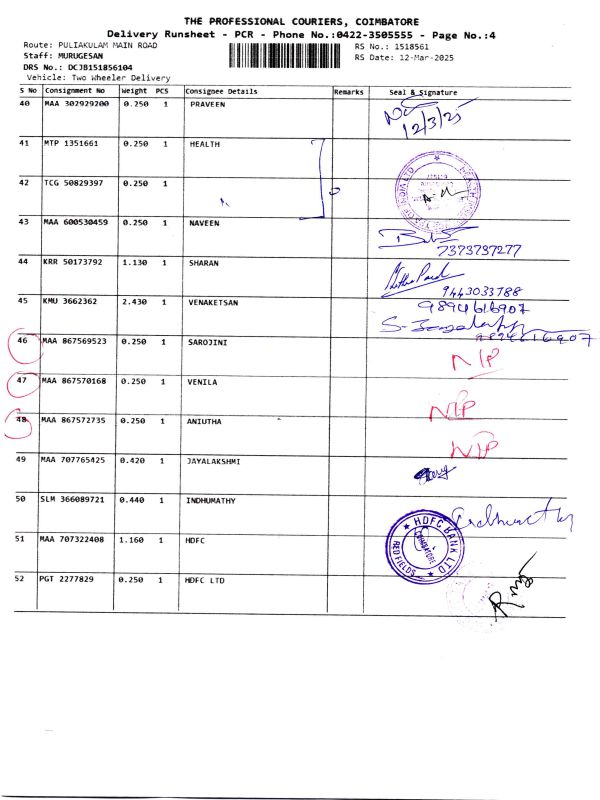 THE PROFESSIONAL COURIERS, COIMBATORE
Delivery Runsheet - PCR - Phone No.:0422-3505555 - Page No.:4
Route: PULIAKULAM MAIN ROAD
RS No.: 1518561
Staff: MURUGESAN
RS Date: 12-Mar-2025
DRS No.: DCJB151856104
Vehicle: Two Wheeler Delivery
S No Consignment No Weight PCS Consignee Details Remarks Seal & Signature
40 MAA 302929200 0.250 1 PRAVEEN
12/3/25
41 MTP 1351661 0.250 1 HEALTH
42 TCG 50829397 0.250 1
43 MAA 600530459 0.250 1 NAVEEN
7373737277
44 KRR 50173792 1.130 1 SHARAN
9443033788
45 KMU 3662362 2.430 1 VENAKETSAN
9894616907
9894616907
46 MAA 867569523 0.250 1 SAROJINI
N/P
47 MAA 867570168 0.250 1 VENILA
N/P
48 MAA 867572735 0.250 1 ANIUTHA
N/P
49 MAA 707765425 0.420 1 JAYALAKSHMI
50 SLM 366089721 0.440 1 INDHUMATHY
51 MAA 707322408 1.160 1 HDFC
HDFC BANK LTD
COIMBATORE
RED FIELDS
52 PGT 2277829 0.250 1 HDFC LTD